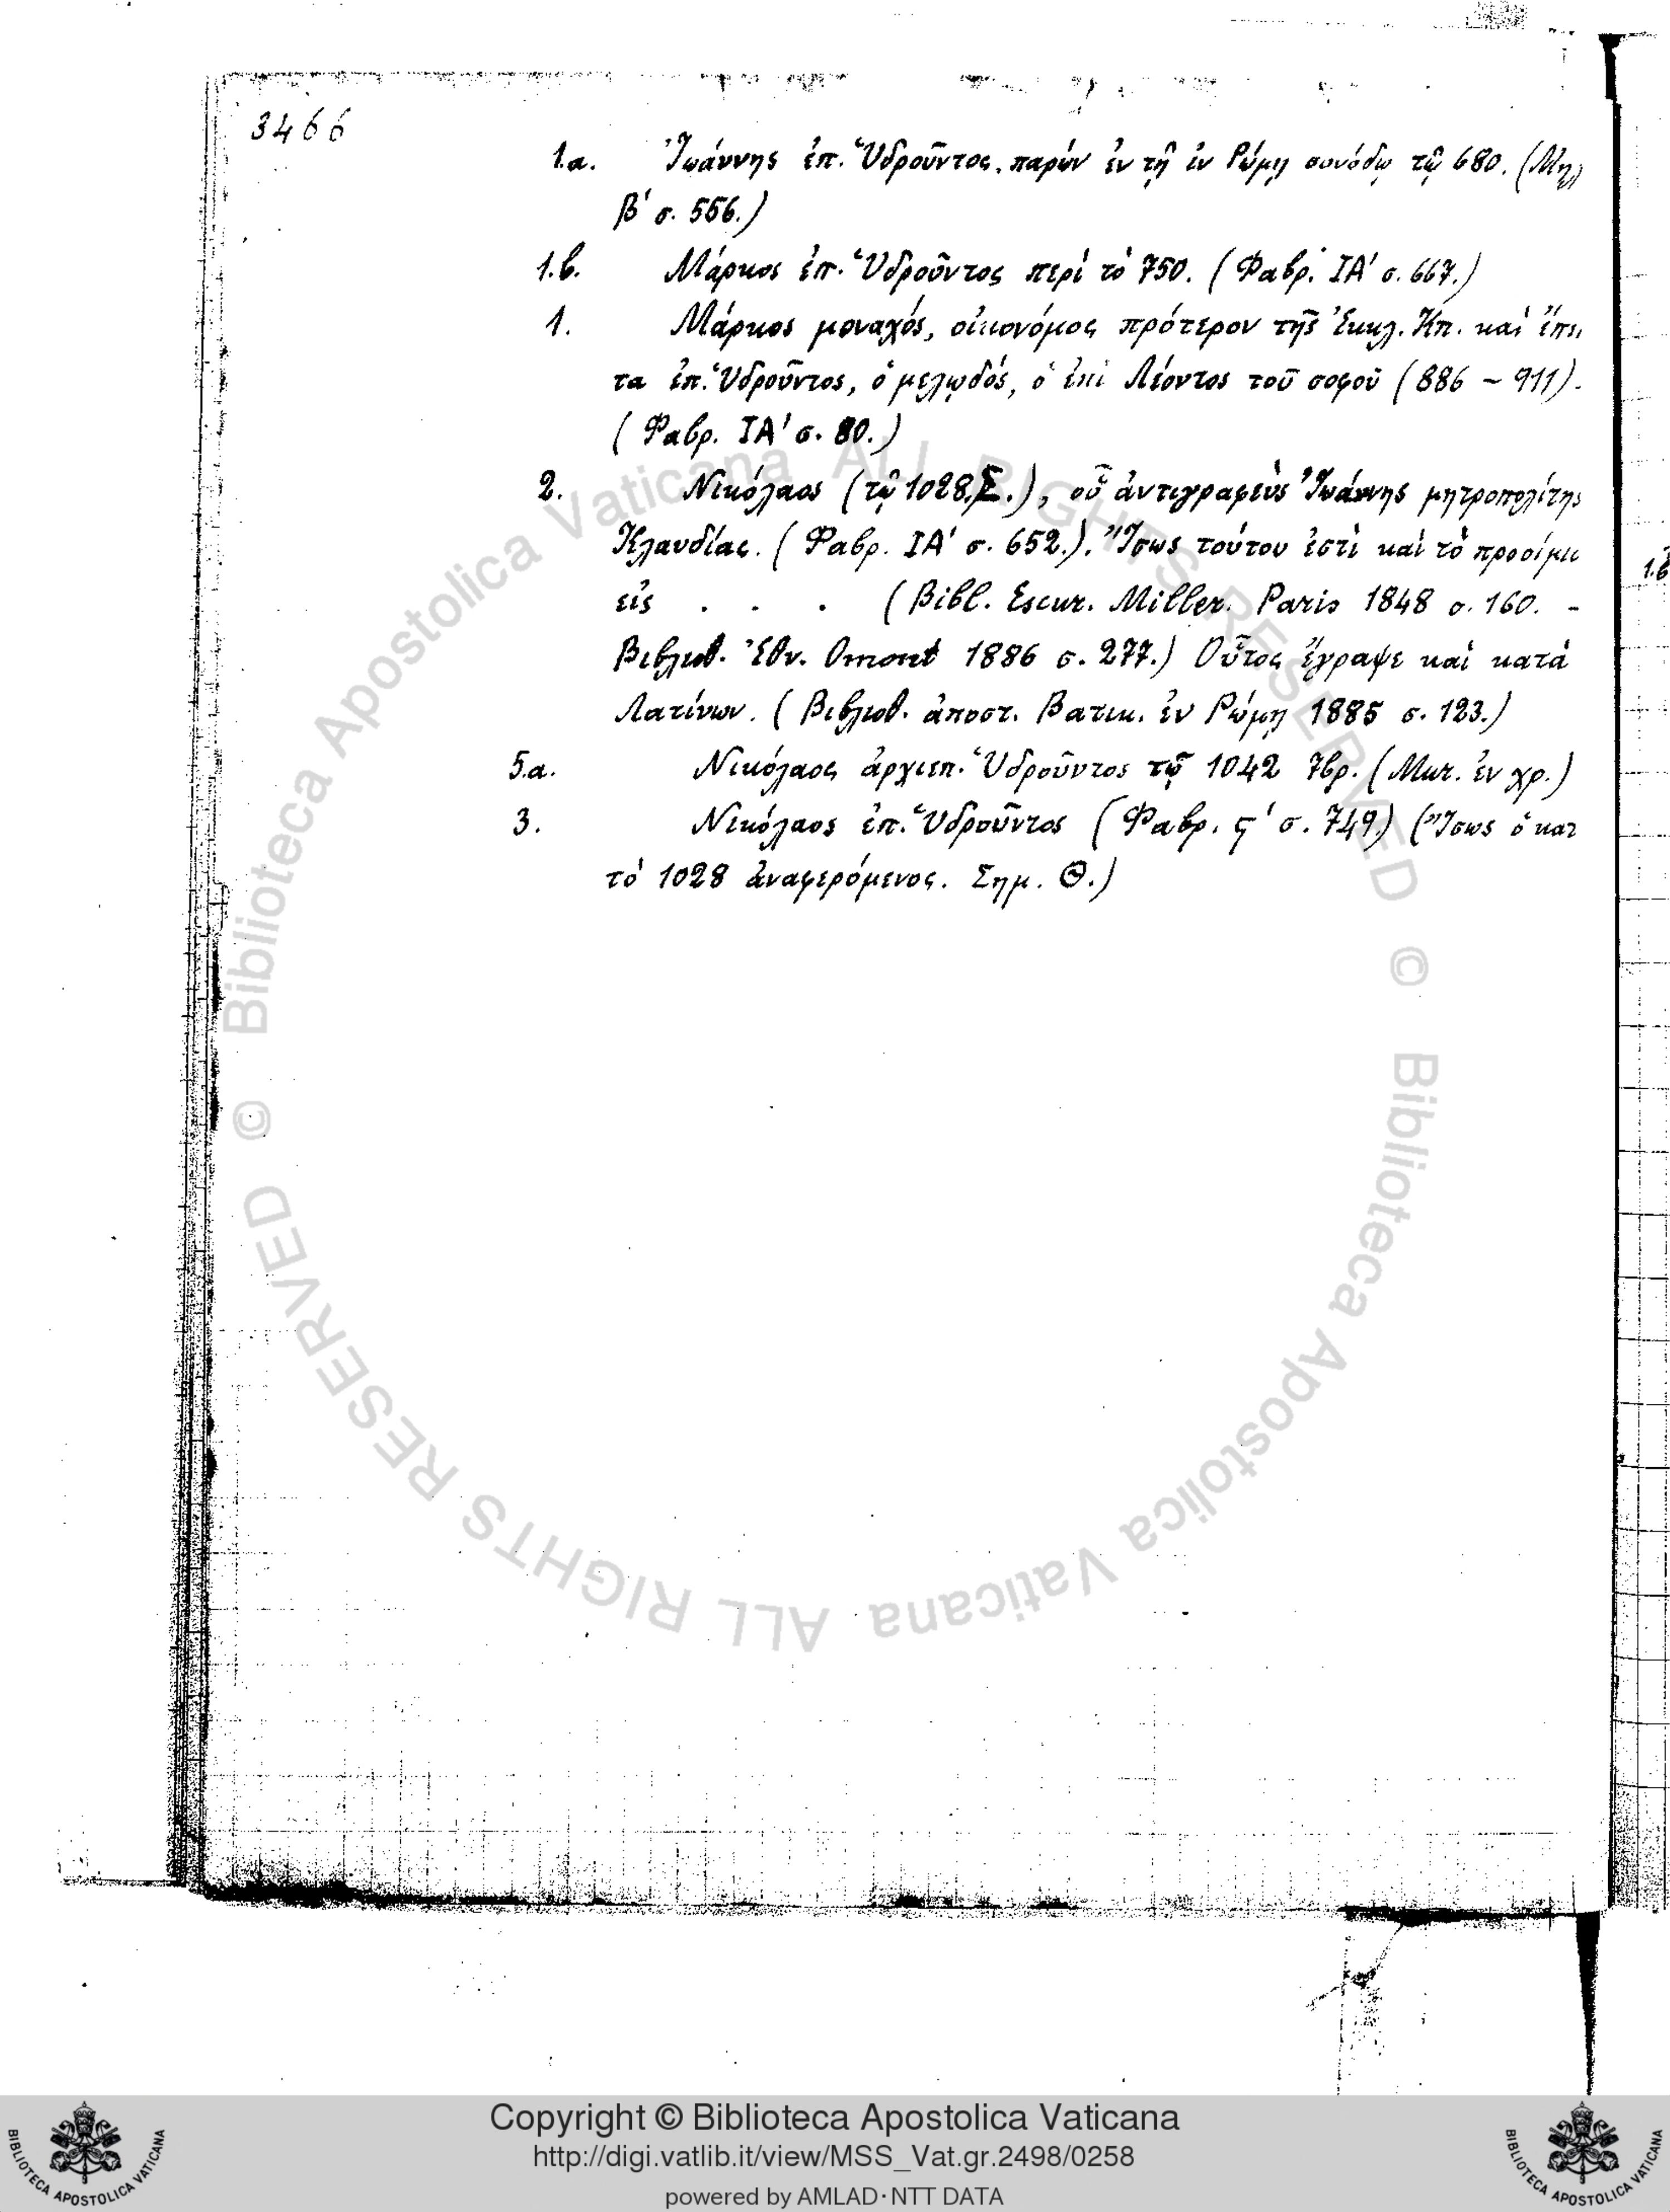 3466
1.α. Ἰωάννης ἐπ. Ὑδροῦντος, παρών ἐν τῇ ἐν Ρώμῃ συνόδῳ τῷ 680. (Μη)
β' σ. 556.)
1.β. Μάρκος ἐπ. Ὑδροῦντος περί τό 750. (Φαβρ. ΙΑ' σ. 667.)
1. Μάρκος μοναχός, οἰκονόμος πρότερον τῆς Ἐκκλ. Κπ. καί ἔπει
τα ἐπ. Ὑδροῦντος, ὁ μελῳδός, ὁ ἐπί Λέοντος τοῦ σοφοῦ (886 ~ 911).
(Φαβρ. ΙΑ' σ. 80.)
2. Νικόλαος (τῷ 1028, Σ.), οὗ ἀντιγραφεύς Ἰωάννης μητροπολίτης
Κλαυδίας. (Φαβρ. ΙΑ' σ. 652.). Ἴσως τούτου ἐστί καί τό προοίμι
εἰς . . . (Bibl. Escur. Miller. Paris 1848 σ. 160. -
Βιβλιοθ. Ἐθν. Omont 1886 σ. 277.) Οὗτος ἔγραψε καί κατά
Λατίνων. (Βιβλιοθ. ἀποστ. Βατικ. ἐν Ρώμῃ 1885 σ. 123.)
5.α. Νικόλαος ἀρχιεπ. Ὑδροῦντος τῷ 1042 7βρ. (Μικ. ἐν χρ.)
3. Νικόλαος ἐπ. Ὑδροῦντος (Φαβρ. ϛ' σ. 749.) (Ἴσως ὁ κατ
τό 1028 ἀναφερόμενος. Σημ. Θ.)
1.β
© Biblioteca Apostolica Vaticana ALL RIGHTS RESERVED
© Biblioteca Apostolica Vaticana ALL RIGHTS RESERVED
Copyright © Biblioteca Apostolica Vaticana
http://digi.vatlib.it/view/MSS_Vat.gr.2498/0258
powered by AMLAD·NTT DATA
BIBLIOTECA APOSTOLICA VATICANA
BIBLIOTECA APOSTOLICA VATICANA